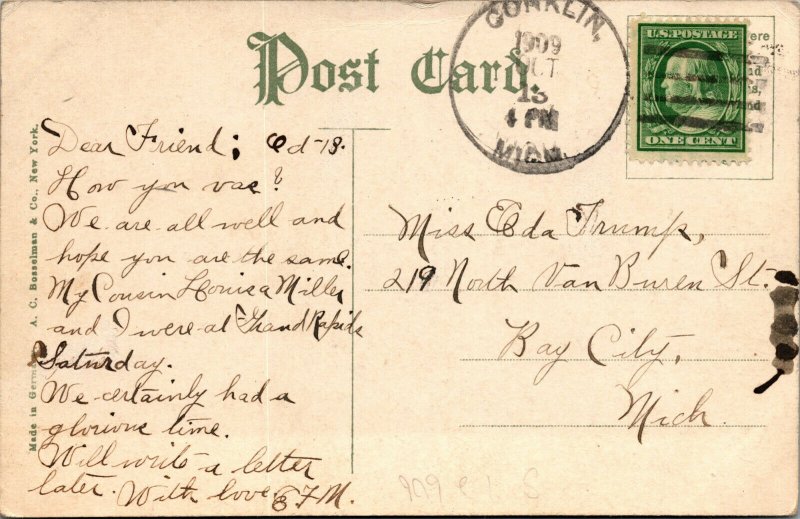 Post Card.
CONKLIN,
1909
OCT
13
4 PM
MICH.
U.S. POSTAGE
ONE CENT
Made in Germany. A. C. Bosselman & Co., New York.
Dear Friend; Oct-13.
How you vas?
We are all well and
hope you are the same.
My Cousin Louisa Miller
and I were at Grand Rapids
Saturday.
We certainly had a
glorious time.
Will write a letter
later. With love, E. F. M.
Miss Eda Trump,
219 North Van Buren St.
Bay City,
Mich